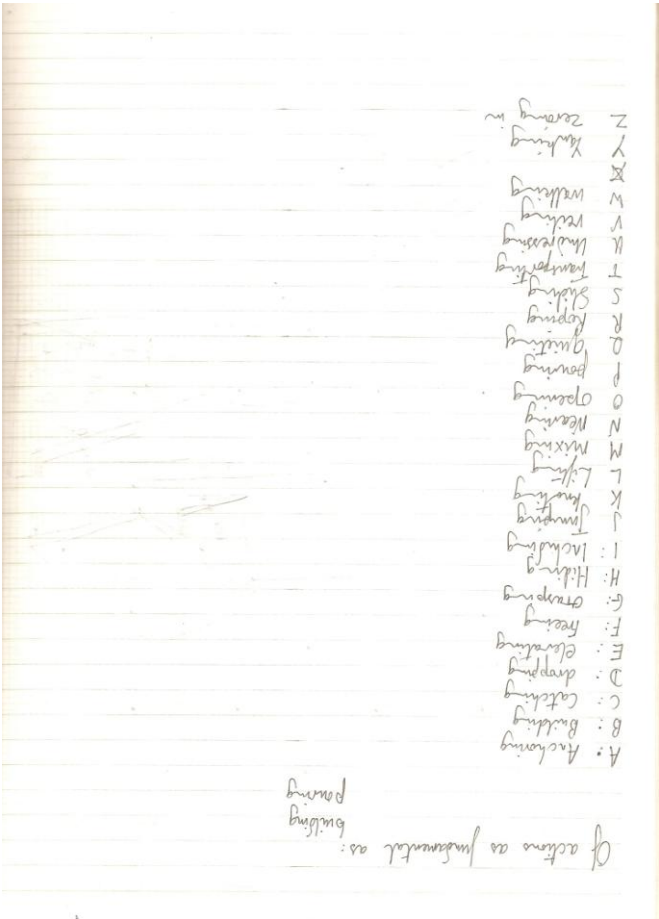 Of actions as fundamental as:
building
pouring
A: Anchoring
B: Building
C: Catching
D: dropping
E: elevating
F: freeing
G: Grasping
H: Hiding
I: Including
J Jumping
K knotting
L Lifting
M Mixing
N Nearing
O Openning
P pouring
Q Quieting
R Roping
S Sliding
T Transporting
U Undressing
V veiling
W walking
X
Y Yanking
Z zeroing in